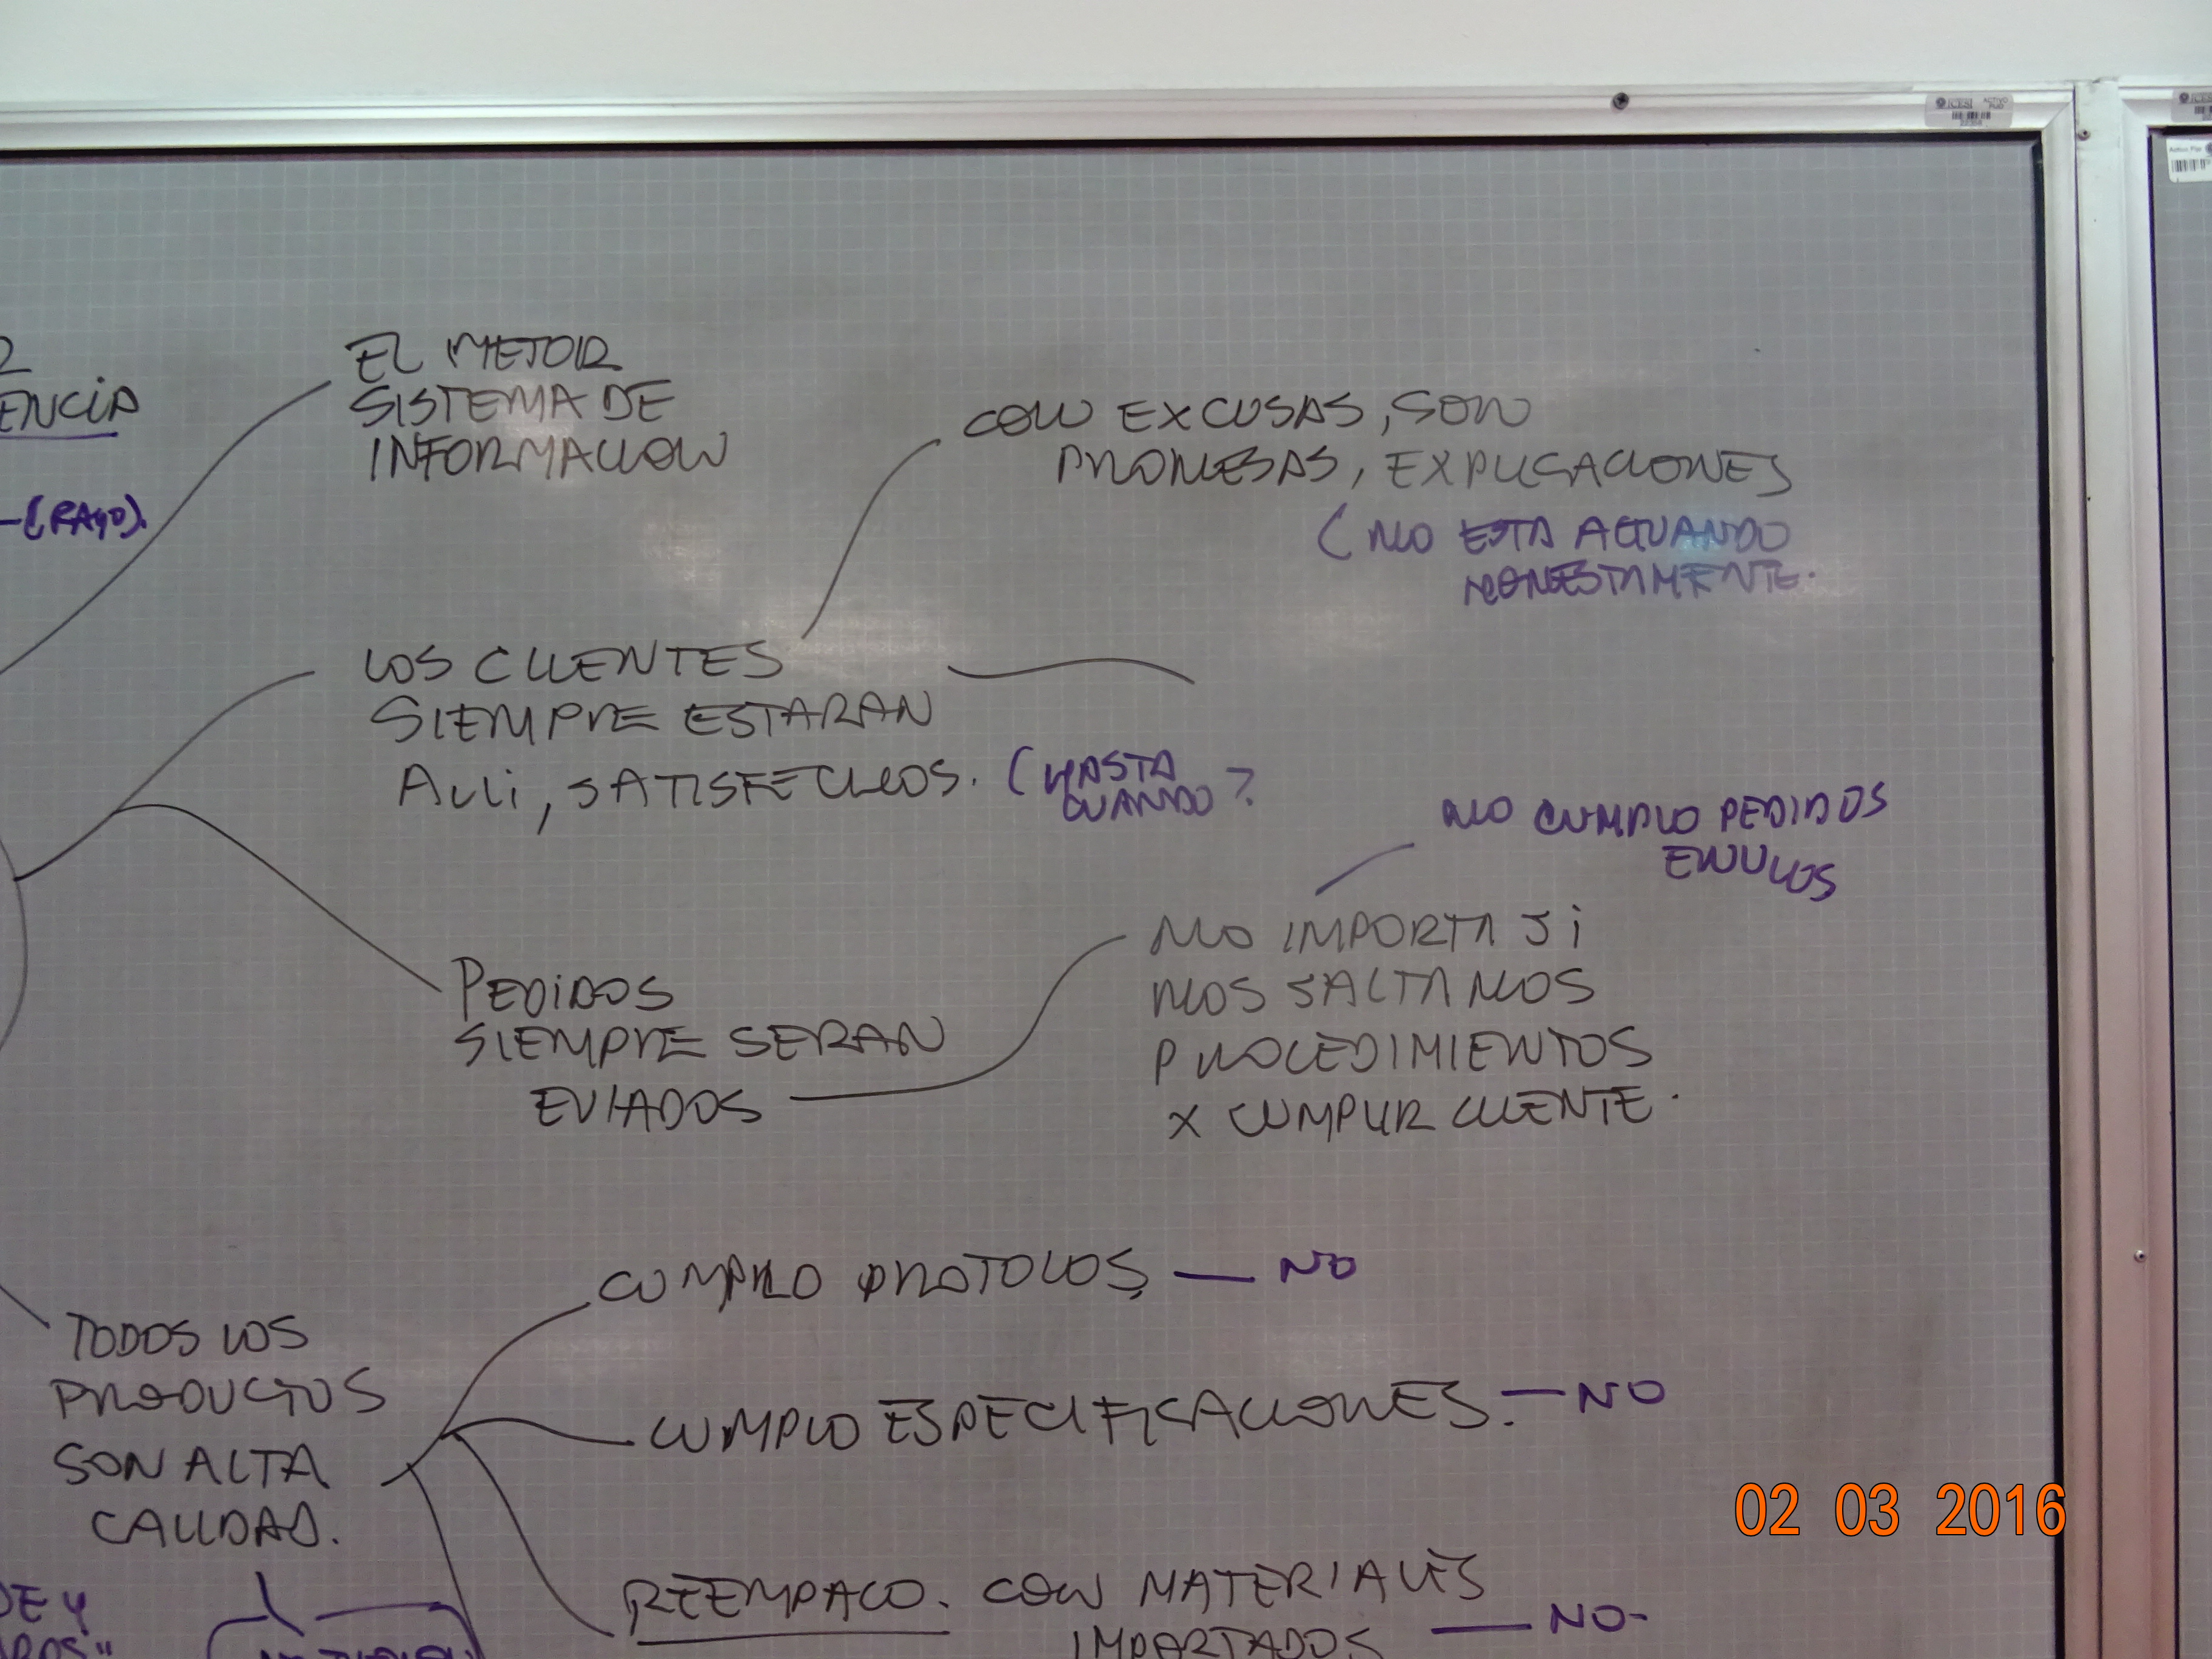 ICESI ACTIVO FIJO
EL MEJOR
SISTEMA DE
INFORMACION
ENCIA
(PAGO).
CON EXCUSAS, SON
PROMESAS, EXPLICACIONES
(NO ESTA ACTUANDO
HONESTAMENTE.
LOS CLIENTES
SIEMPRE ESTARAN
ALLI, SATISFECHOS. (HASTA
CUANDO?
NO CUMPLO PEDIDOS
PEDIDOS
SIEMPRE SERAN
EVIADOS
NO IMPORTA SI
NOS SALTAMOS
PROCEDIMIENTOS
X CUMPLIR CLIENTE.
TODOS LOS
PRODUCTOS
SON ALTA
CALIDAD.
CUMPLO PROTOLOS — NO
CUMPLO ESPECIFICACIONES. — NO
REEMPACO. CON MATERIALES
IMPORTADOS — NO-
DE Y
02 03 2016